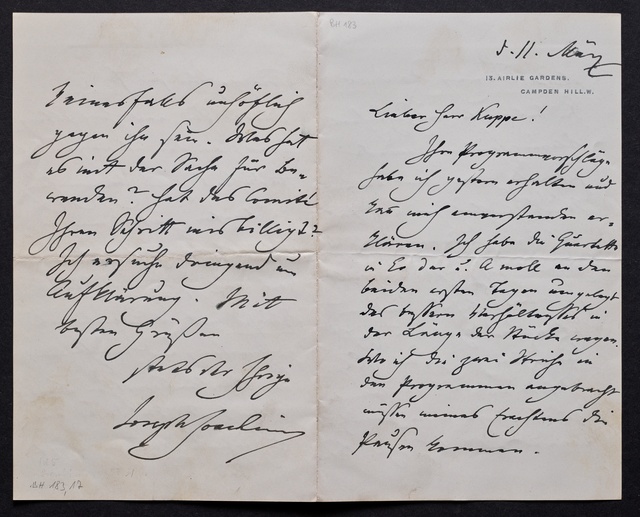 BH 183
d. 11. März
13, AIRLIE GARDENS,
CAMPDEN HILL, W.
Lieber Herr Kuppe!
Ihre Programmvorschläge
habe ich gestern erhalten und
mich einverstanden er-
klären. Ich habe die Quartette
in Es dur u. A moll an den
beiden ersten Tagen umgelegt
des bessern Verhältnisses in
der Länge der Stücke wegen.
Wo ich die zwei Striche in
den Programmen angebracht
müssen meines Erachtens die
Pausen kommen.
keinesfalls unhöflich
gegen ihn sein. Was hat
es mit der Sache für Be-
wenden? Hat das Comité
Ihren Schritt mißbilligt?
Ich ersuche dringend um
Aufklärung. Mit
besten Grüßen
stets der Ihrige
Joseph Joachim
BH 183,17